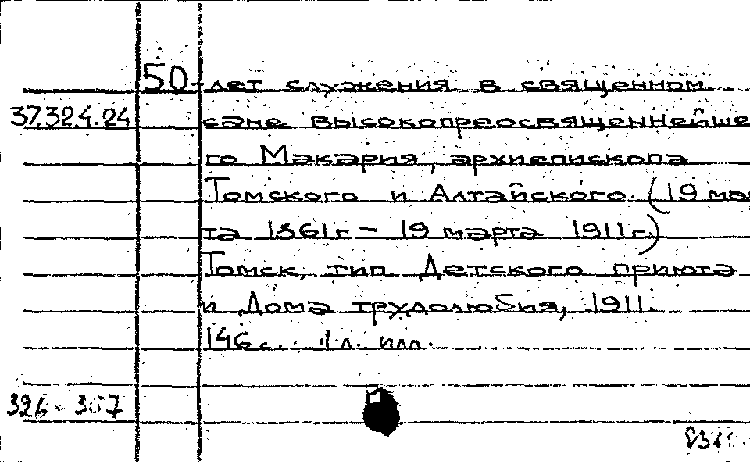 50 лет служения в священном
37.32.4.24 сане высокопреосвященнейше
го Макария, архиепископа
Томского и Алтайского. (19 мар
та 1861г – 19 марта 1911г.)
Томск, тип Детского приюта
и Дома трудолюбия, 1911.
146 с. 1 л. илл.